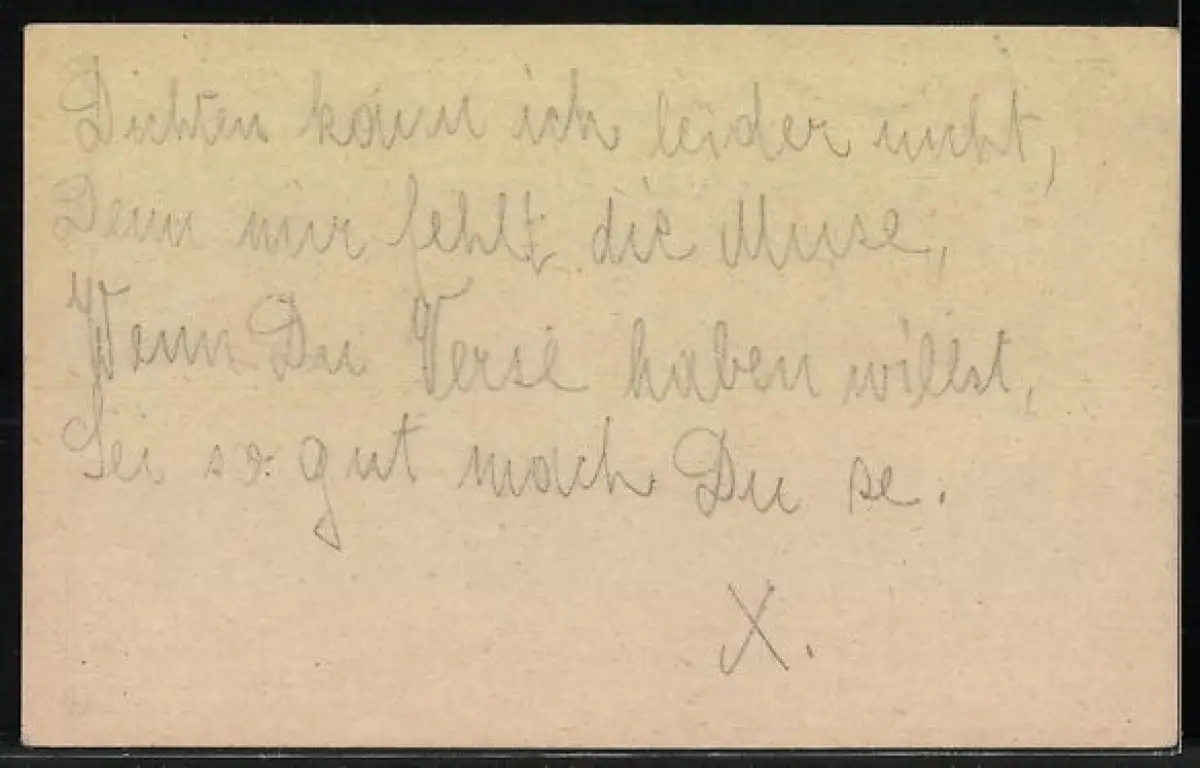 Dichten kann ich leider nicht,
Denn mir fehlt die Muse,
Wenn Du Verse haben willst,
Sei so gut mach Du se.
X.